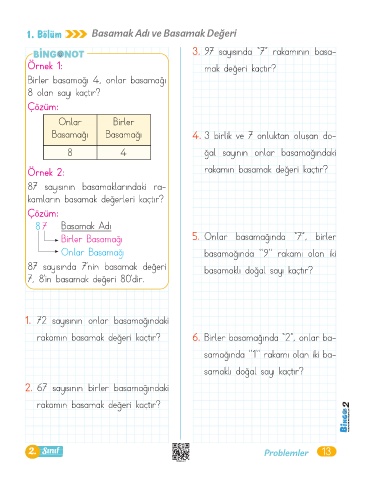 1. Bölüm Basamak Adı ve Basamak Değeri
BİNGO NOT
Örnek 1:
Birler basamağı 4, onlar basamağı
8 olan sayı kaçtır?
Çözüm:
Onlar Basamağı Birler Basamağı
8 4
Örnek 2:
87 sayısının basamaklarındaki ra-
kamların basamak değerleri kaçtır?
Çözüm:
87 Basamak Adı
Birler Basamağı
Onlar Basamağı
87 sayısında 7'nin basamak değeri
7, 8'in basamak değeri 80'dir.
1. 72 sayısının onlar basamağındaki
rakamın basamak değeri kaçtır?
2. 67 sayısının birler basamağındaki
rakamın basamak değeri kaçtır?
3. 97 sayısında "7" rakamının basa-
mak değeri kaçtır?
4. 3 birlik ve 7 onluktan oluşan do-
ğal sayının onlar basamağındaki
rakamın basamak değeri kaçtır?
5. Onlar basamağında "7", birler
basamağında "9" rakamı olan iki
basamaklı doğal sayı kaçtır?
6. Birler basamağında "2", onlar ba-
samağında "1" rakamı olan iki ba-
samaklı doğal sayı kaçtır?
BİNGO 2
2. Sınıf
Problemler 13